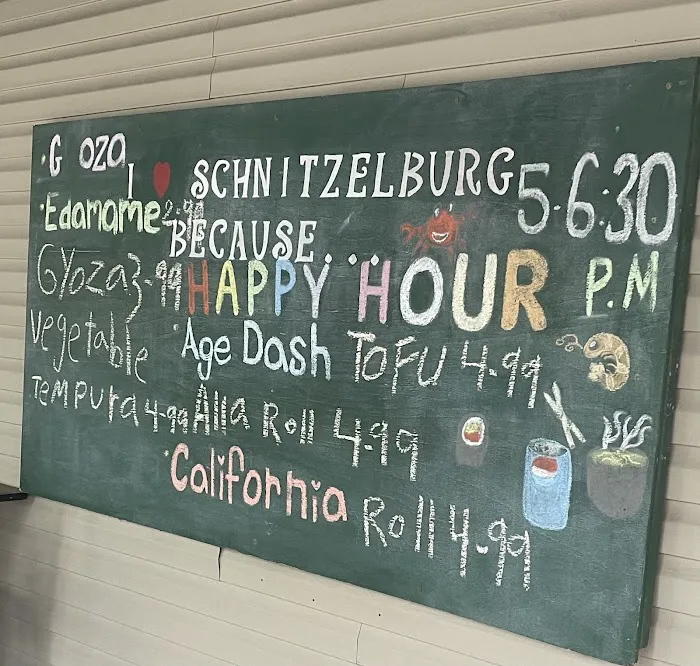 G oza
I ♥ SCHNITZELBURG 5-6:30
Edamame 2.99 BECAUSE...
Gyoza 3.99 HAPPY HOUR P.M
Vegetable Age Dash TOFU 4.99
TEMPURA 4.99 Roll 4.99
California Roll 4.99